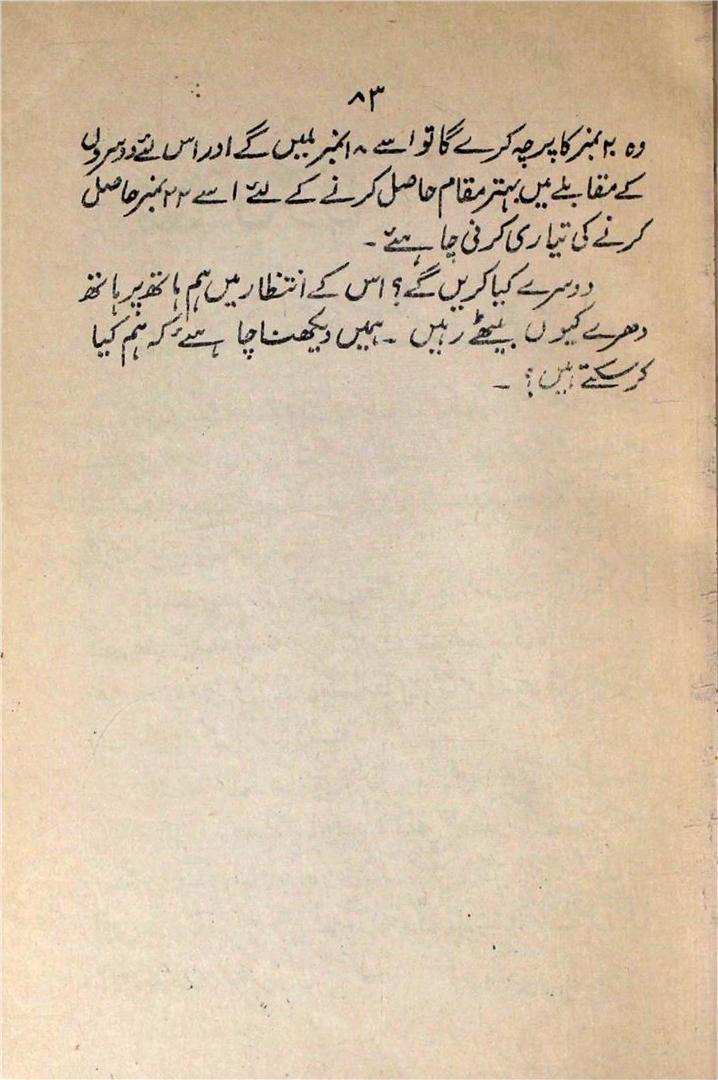 ۸۳
وہ ۲۰ نمبر کا پرچہ کرے گا تو اسے ۱۸ نمبر ملیں گے اور اس لئے دوسروں
کے مقابلے میں بہتر مقام حاصل کرنے کے لئے اسے ۲۲ نمبر حاصل
کرنے کی تیاری کرنی چاہئے ۔
دوسرے کیا کریں گے؟ اس کے انتظار میں ہم ہاتھ پر ہاتھ
دھرے کیوں بیٹھے رہیں ۔ ہمیں دیکھنا چاہئے کہ ہم کیا
کرسکتے ہیں؟ ۔